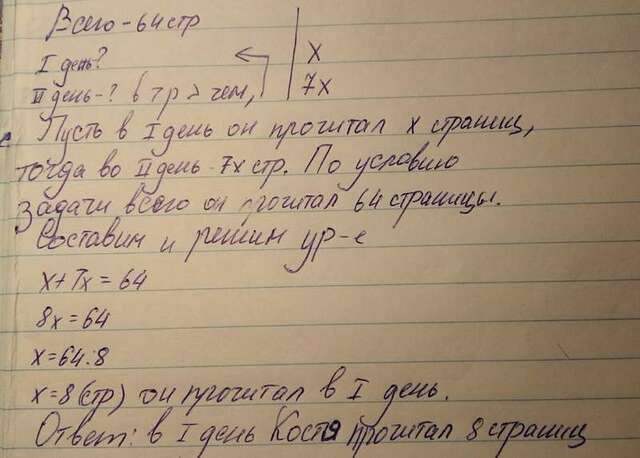 Всего - 64 стр
I день? | x
II день - ? в 7 р > чем, | 7x
Пусть в I день он прочитал x страниц,
тогда во II день - 7x стр. По условию
задачи всего он прочитал 64 страницы.
Составим и решим ур-е
x + 7x = 64
8x = 64
x = 64 : 8
x = 8 (стр) он прочитал в I день.
Ответ: в I день Костя прочитал 8 страниц